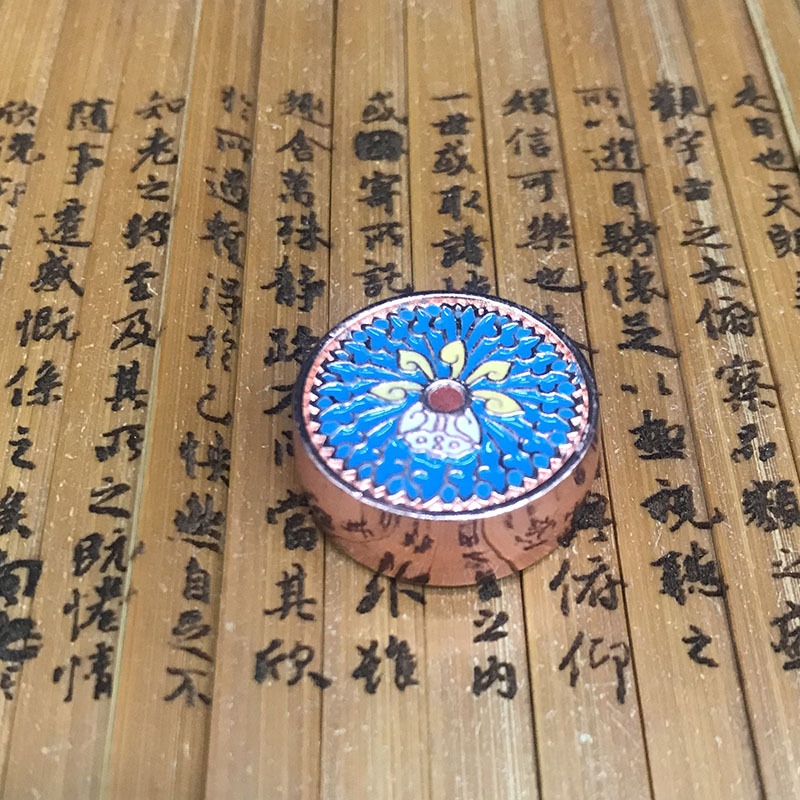 是日也天朗
觀宇宙之大俯察品類之盛
所以遊目騁懷足以極視聽之
娛信可樂也 與俯仰
一世或取諸 之內
或因寄所託 雖
趣舍萬殊靜躁不同當其欣
於所遇暫得於己快然自足不
知老之將至及其所之既惓情
隨事遷感慨係之矣向之
欣俛仰之